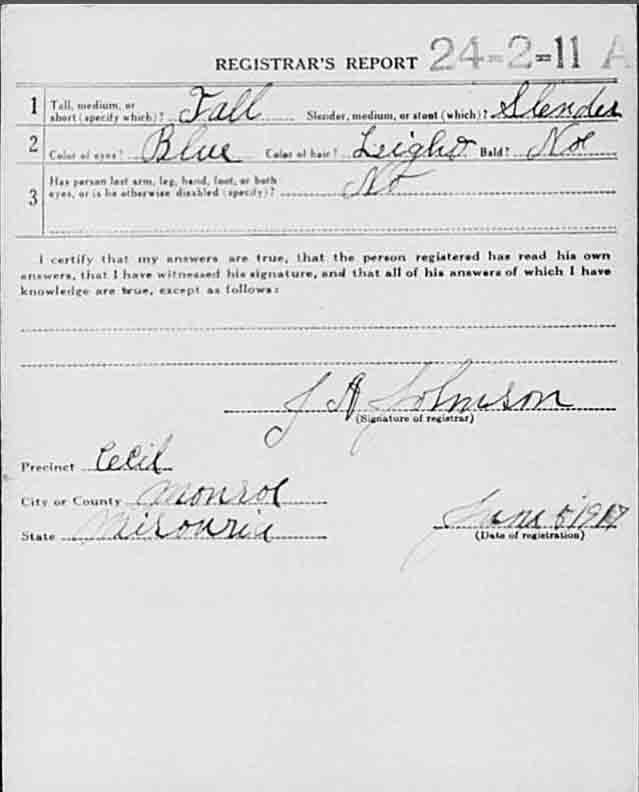 REGISTRAR'S REPORT 24-2-11 A
1 Tall, medium, or short (specify which)? Tall Slender, medium, or stout (which)? Slender
2 Color of eyes? Blue Color of hair? Leight Bald? No
3 Has person lost arm, leg, hand, foot, or both
eyes, or is he otherwise disabled (specify)? No
I certify that my answers are true, that the person registered has read his own
answers, that I have witnessed his signature, and that all of his answers of which I have
knowledge are true, except as follows:
J A Johnson
(Signature of registrar)
Precinct Cecil
City or County Monroe
State
June 5 1917
(Date of registration)